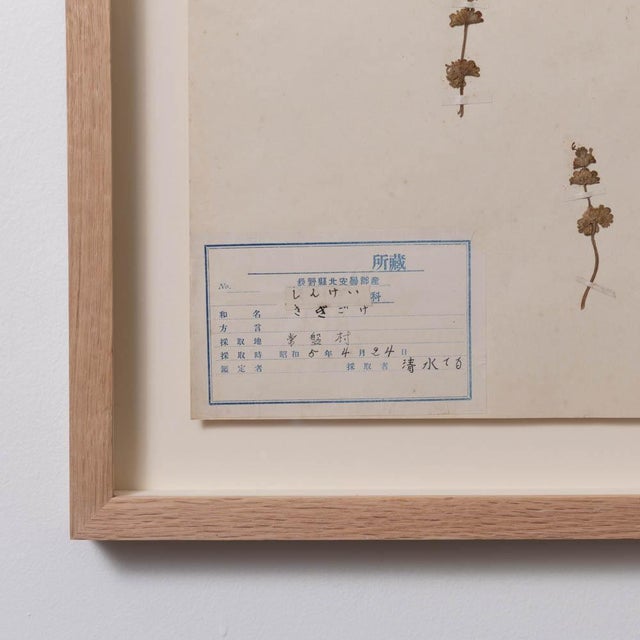 所蔵
No. 長野縣北安曇郡産
しんけい 科
和名 きぎごけ
方言
採取地 常盤村
採取時 昭和5年4月24日
鑑定者 採取者 清水てる